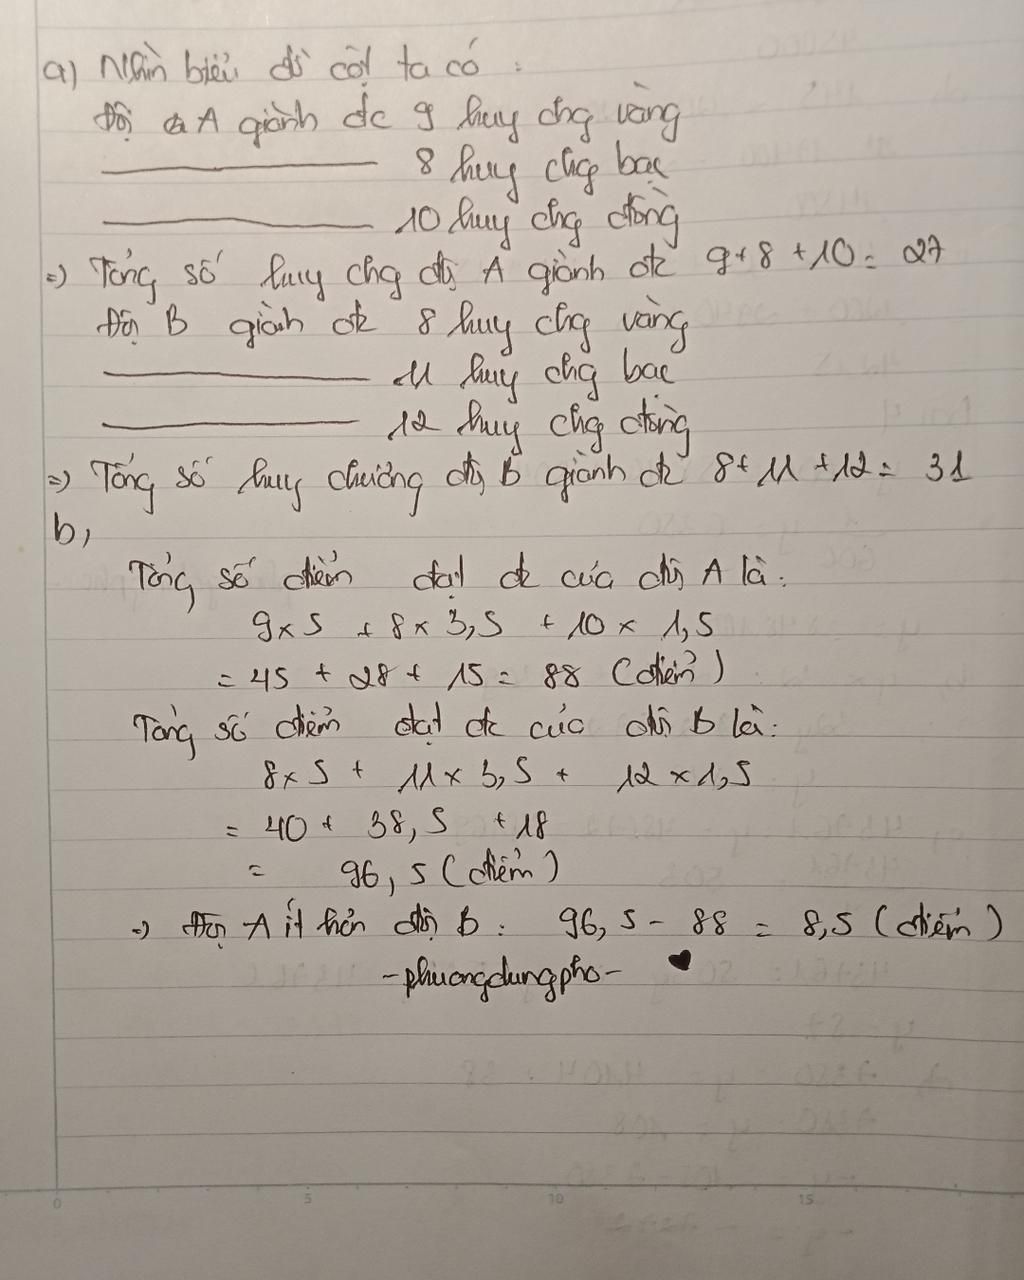 a) Nhìn biểu đồ cột ta có :
Đội A giành đc 9 huy chg vàng
8 huy chg bạc
10 huy chg đồng
=) Tổng số huy chg đội A giành đc 9+8+10= 27
Đội B giành đc 8 huy chg vàng
11 huy chg bạc
12 huy chg đồng
=) Tổng số huy chương đội B giành đc 8+11+12= 31
b,
Tổng số điểm đạt đc của đội A là:
9×5 + 8×3,5 + 10×1,5
= 45 + 28 + 15 = 88 (điểm)
Tổng số điểm đạt đc của đội B là:
8×5 + 11×3,5 + 12×1,5
= 40+ 38,5 +18
= 96,5 (điểm)
=) Đội A ít hơn đội B: 96,5 - 88 = 8,5 (điểm)
-phuongdungpho- ♥
0 5 10 15